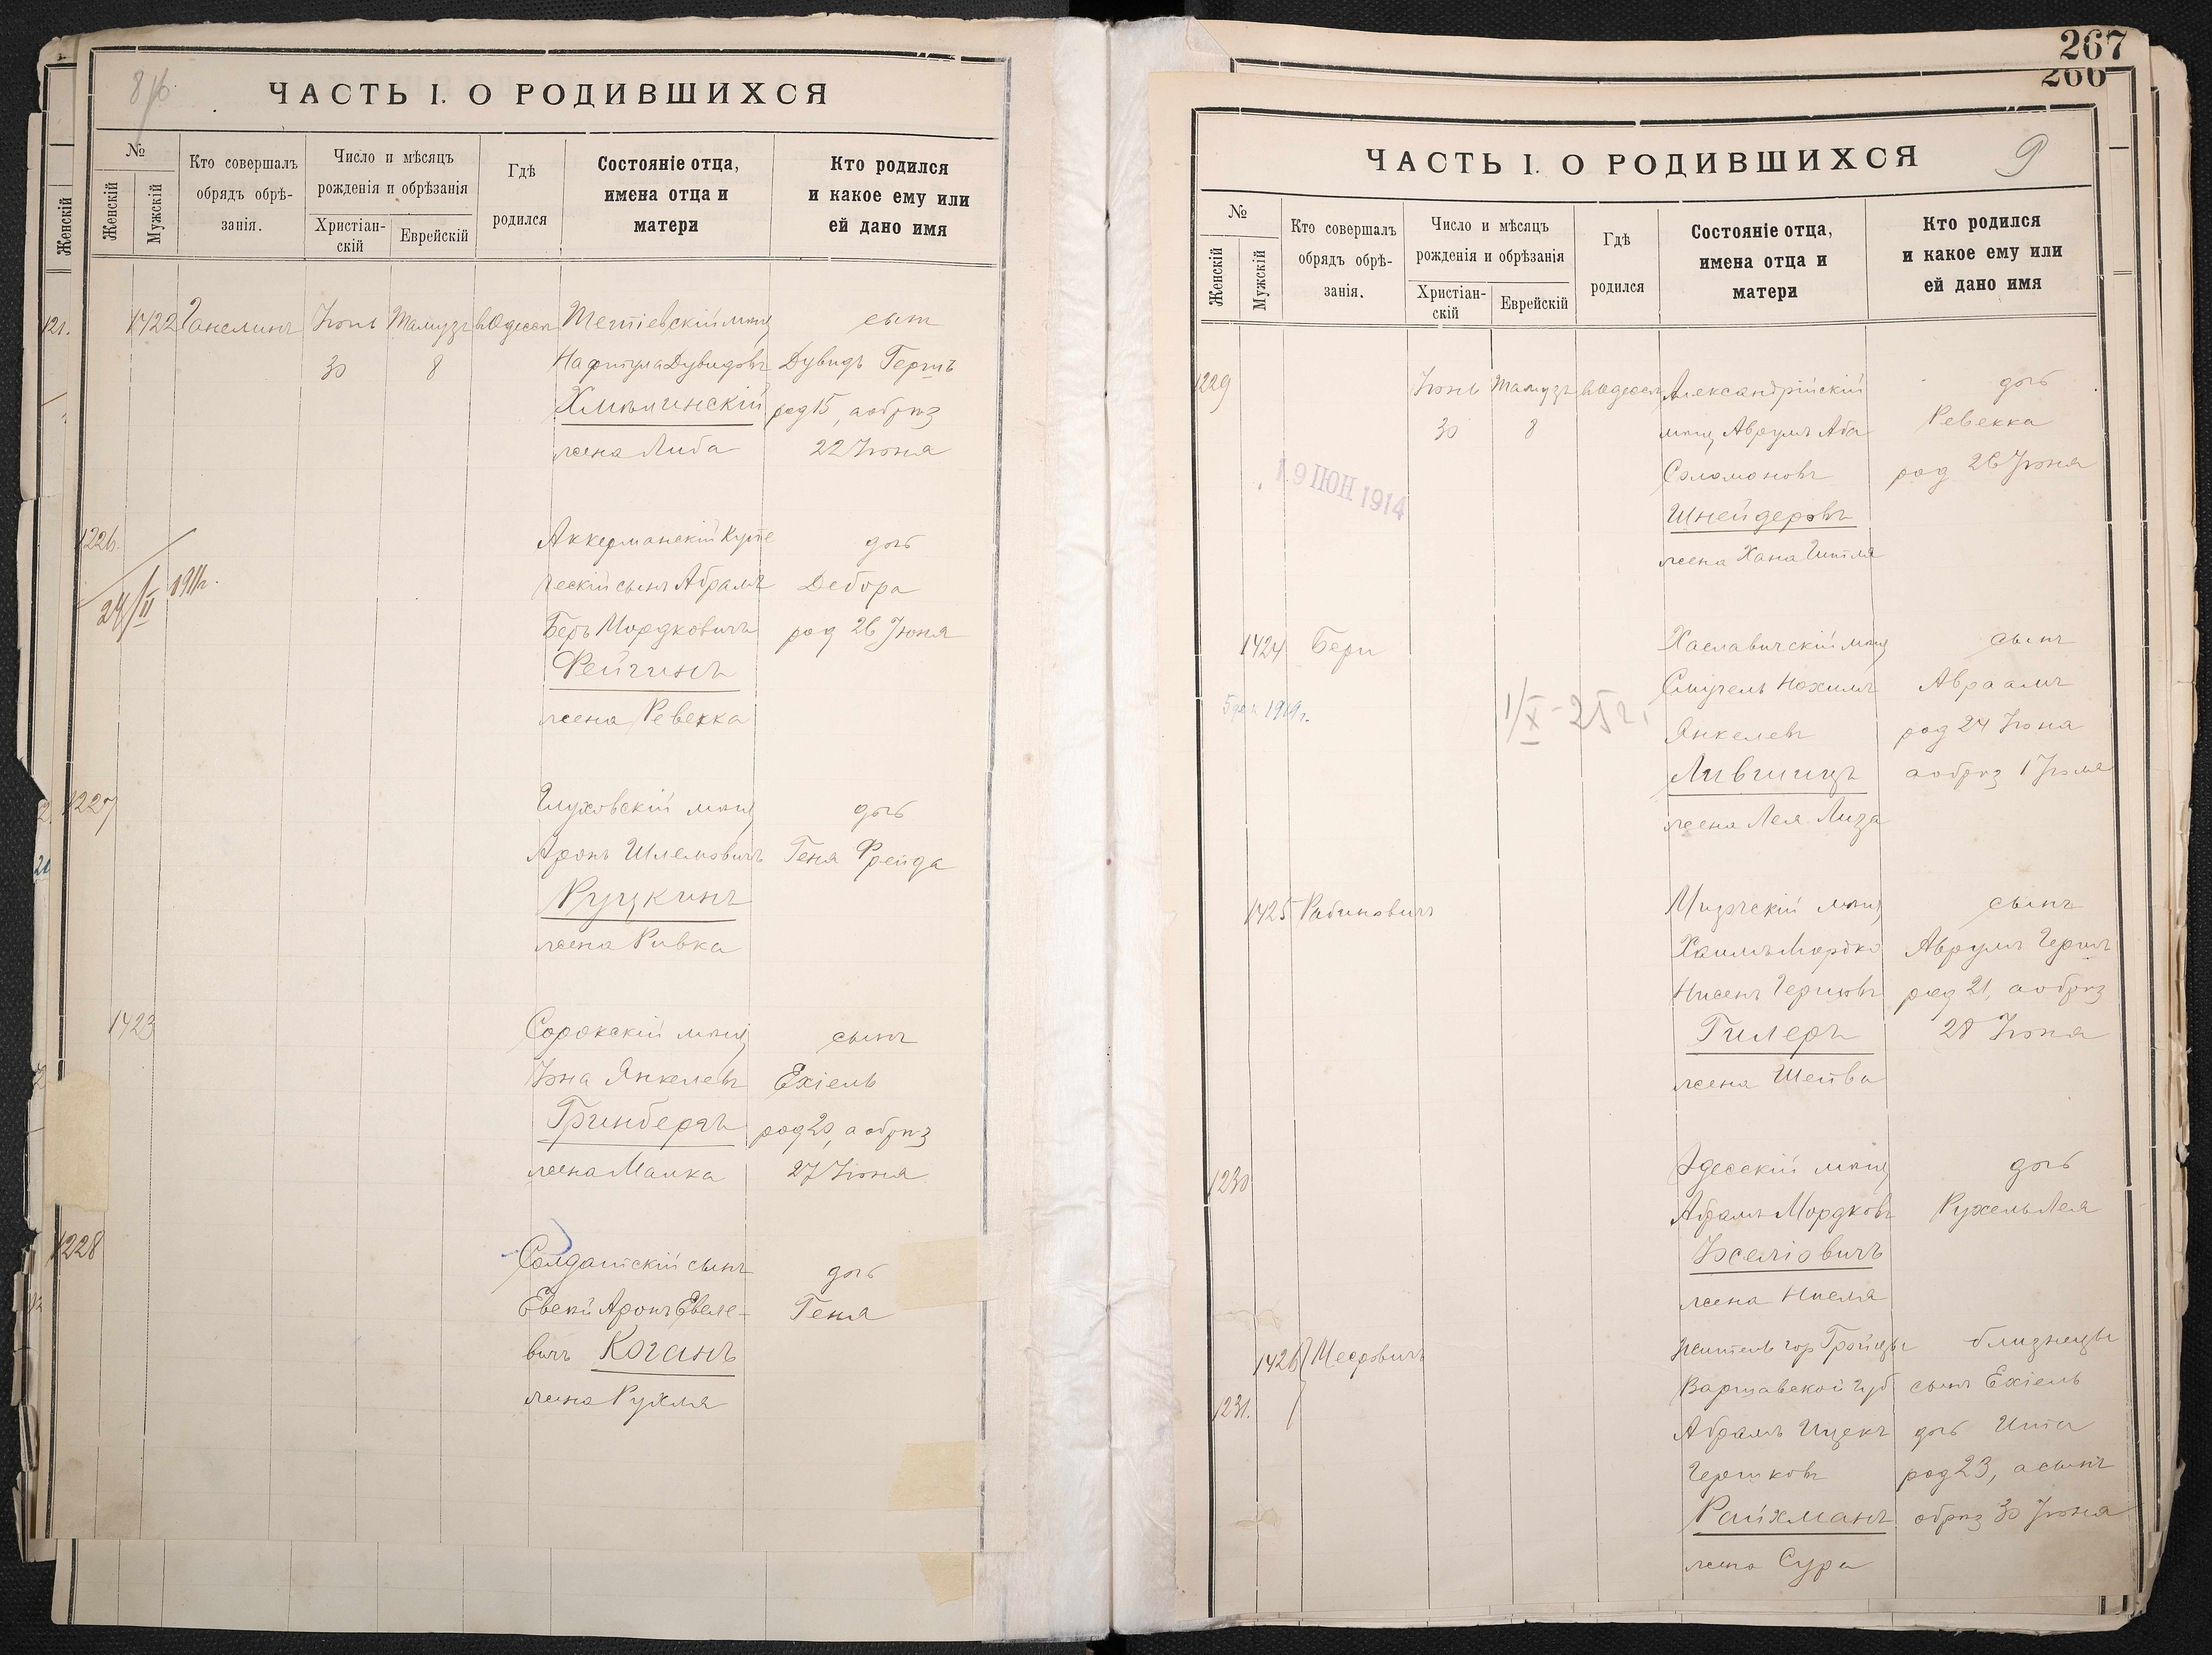 8/16
ЧАСТЬ I. О РОДИВШИХСЯ
№
Женскій
Женскій
Мужскій
Кто совершалъ
обрядъ обрѣ-
занія.
Число и мѣсяцъ
рожденія и обрѣзанія
Христіан-
скій
Еврейскій
Гдѣ
родился
Состояніе отца,
имена отца и
матери
Кто родился
и какое ему или
ей дано имя
1422 Ганелинъ Іюнь Тамузъ в Одессѣ Тетіевскій мѣщ сынъ
30 8 Нафтула Дувидовъ Дувидъ Гершъ
Хмѣльинскій род 15, а обрѣз
жена Либа 22 Іюня
1226. Аккерманскій Купе дочь
24/II 1911г. ческій сынъ Абрамъ Дебора
Беръ Мордковичъ род 26 Іюня
Фейгинъ
жена Ревекка
1227 Глуховскій мѣщ дочь
Аронъ Шлемовичъ Геня Фрейда
Руцкинъ
жена Ривка
1423 Сорокскій мѣщ сынъ
Іона Янкелевъ Ехіель
Гринбергъ род 20, а обрѣз
жена Малка 27 Іюня
1228 Солдатскій сынъ дочь
Аронъ Евеле- Геня
вичъ Коганъ
жена Рухля
267
266
ЧАСТЬ I. О РОДИВШИХСЯ
9
№
Женскій
Мужскій
Кто совершалъ
обрядъ обрѣ-
занія.
Число и мѣсяцъ
рожденія и обрѣзанія
Христіан-
скій
Еврейскій
Гдѣ
родился
Состояніе отца,
имена отца и
матери
Кто родился
и какое ему или
ей дано имя
1229 Іюнь Тамузъ в Одессѣ Александрійскій дочь
30 8 мѣщ Аврумъ Аба Ревекка
Соломоновъ род 26 Іюня
19 ІЮН 1914
Шнейдеровъ
жена Хана Гитля
1424 Бери Хаславичскій мѣщ сынъ
Смуель Нохимъ Авраамъ
5 дек 1919г. 1/X-25г. Янкелевъ род 24 Іюня
Лившицъ а обрѣз 1 Іюля
жена Лея Лиза
1425 Рабиновичъ мѣщ сынъ
Хаимъ Мордко Аврумъ Гершъ
Нисенъ Гершовъ род 21, а обрѣз
Гилеръ 28 Іюня
жена Шейва
1230 Одесскій мѣщ дочь
Абрамъ Мордковъ Рухель Лея
Іоселіовичъ
жена Нисля
1426 Мееровичъ Житель гор Гройцы близнецы
Варшавской губ сынъ Ехіель
1231. Абрамъ Ицекъ дочь Ита
Гершковъ род 23, а сынъ
Райхманъ обрѣз 30 Іюня
жена Сура